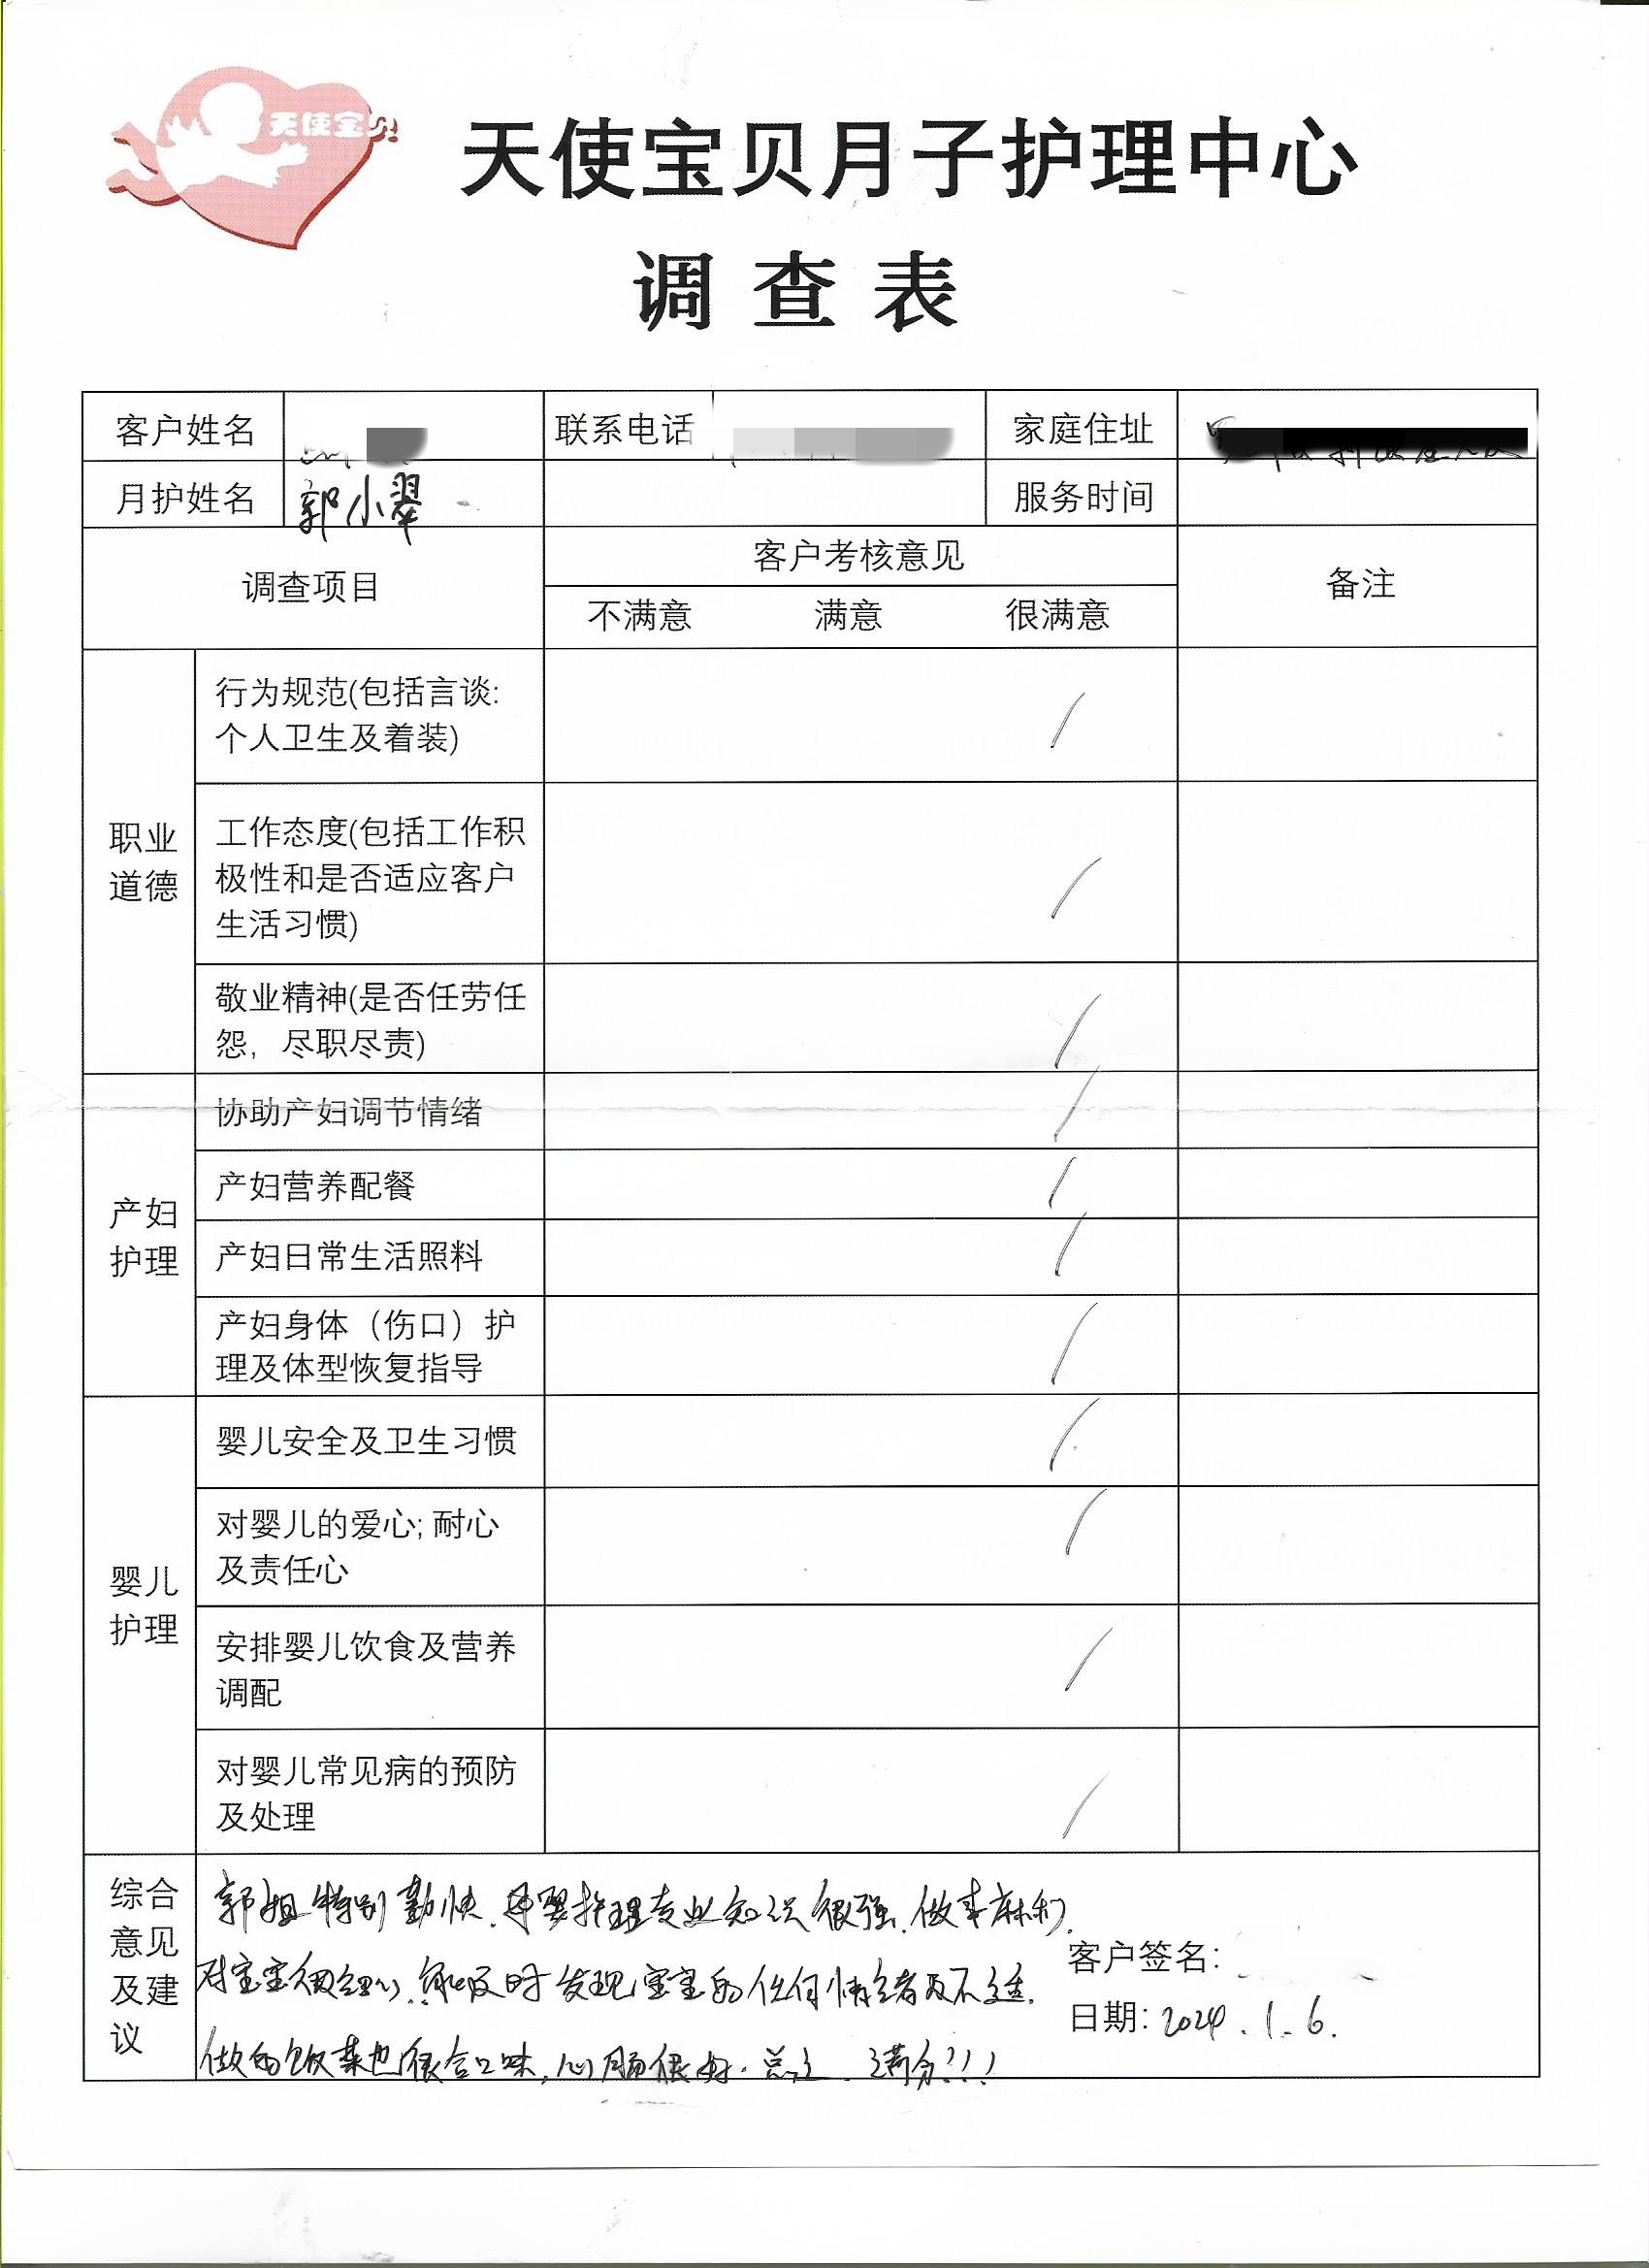 天使宝贝
天使宝贝月子护理中心
调查表
客户姓名 联系电话 家庭住址
月护姓名 郭小翠 服务时间
调查项目 客户考核意见 备注
不满意 满意 很满意
职业
道德
行为规范(包括言谈:
个人卫生及着装)
工作态度(包括工作积
极性和是否适应客户
生活习惯)
敬业精神(是否任劳任
怨，尽职尽责)
产妇
护理
协助产妇调节情绪
产妇营养配餐
产妇日常生活照料
产妇身体（伤口）护
理及体型恢复指导
婴儿
护理
婴儿安全及卫生习惯
对婴儿的爱心; 耐心
及责任心
安排婴儿饮食及营养
调配
对婴儿常见病的预防
及处理
综合
意见
及建
议
郭姐特别勤快、母婴护理专业知识很强、做事麻利、
对宝宝很细心、能及时发现宝宝的任何情绪及不适.
做的饭菜也很合口味, 心肠很好. 总之、满分!!!
客户签名:
日期: 2024.1.6.